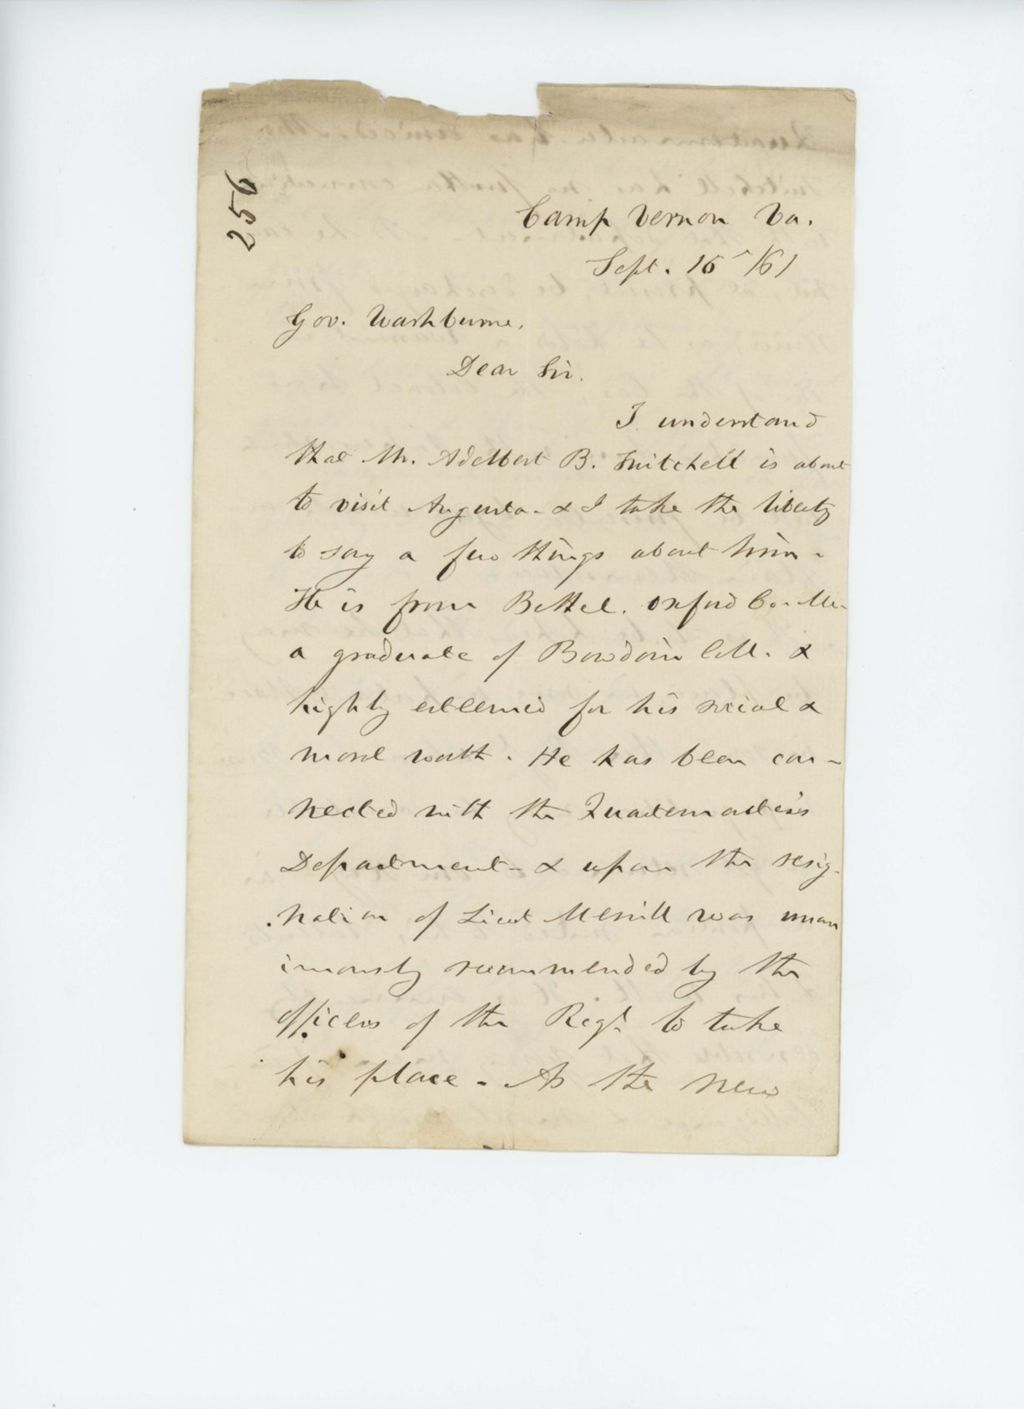 256
Camp Vernon Va.
Sept. 16 /61
Gov. Washburne.
Dear Sir.
I understand
that Mr. Adelbert B. Twitchell is about
to visit Augusta - & I take the liberty
to say a few things about him -
He is from Bethel. Oxford Co. Me.
a graduate of Bowdoin Coll. &
highly esteemed for his social &
moral worth. He has been con-
nected with the Quartermasters
Department - & upon the resig-
nation of Lieut Merrill was unan
imously recommended by the
officers of the Regt. to take
his place - As the new